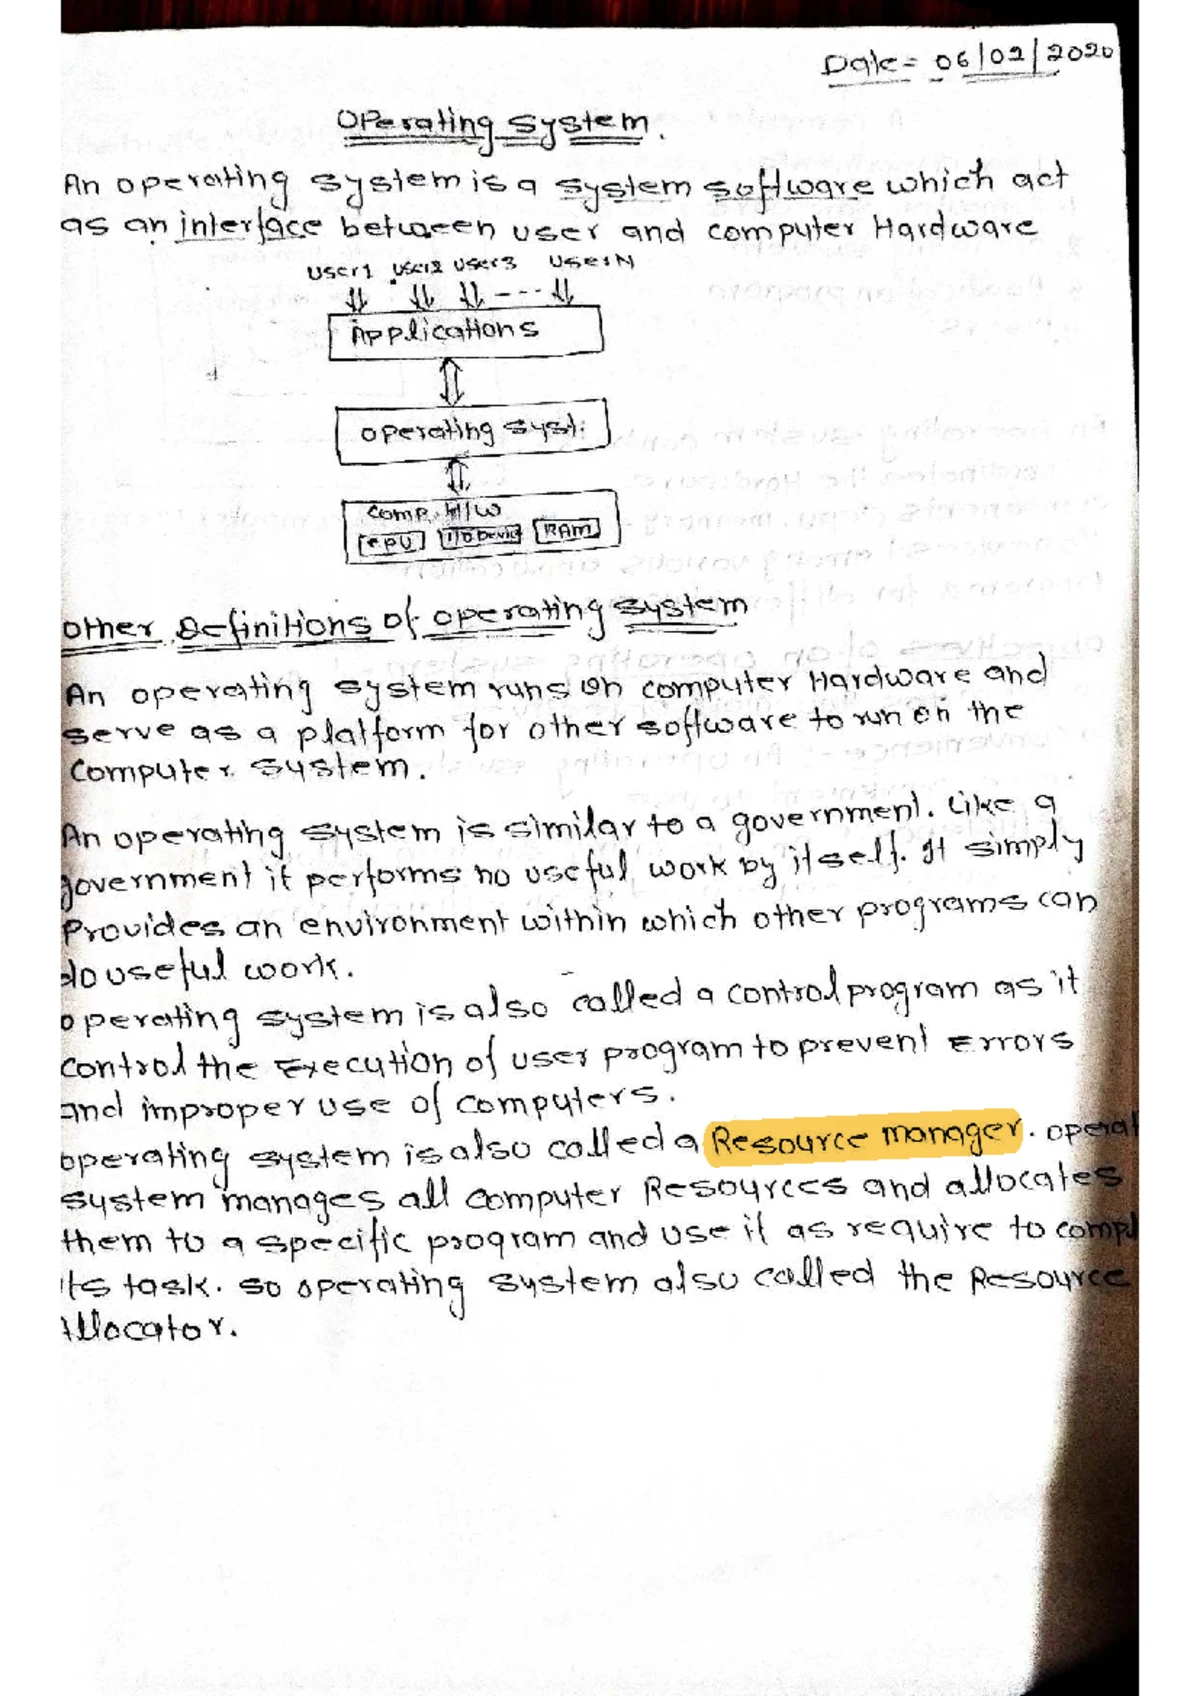 Date = 06/02/2020
Operating System.
An operating system is a system software which act
as an interface between user and computer Hardware
User1 User2 User3 UserN
Applications
Operating Syst:
Comp. H/W
CPU I/O Device RAM
Other Definitions of operating system
An operating system runs on computer Hardware and
serve as a platform for other software to run on the
Computer System.
An operating system is similar to a government. Like a
government it performs no useful work by itself. It simply
Provides an environment within which other programs can
do useful work.
operating system is also called a control program as it
control the Execution of user program to prevent Errors
and improper use of computers.
operating system is also called a Resource manager. operat
system manages all computer Resources and allocates
them to a specific program and use it as require to compl
its task. so operating system also called the Resource
Allocator.